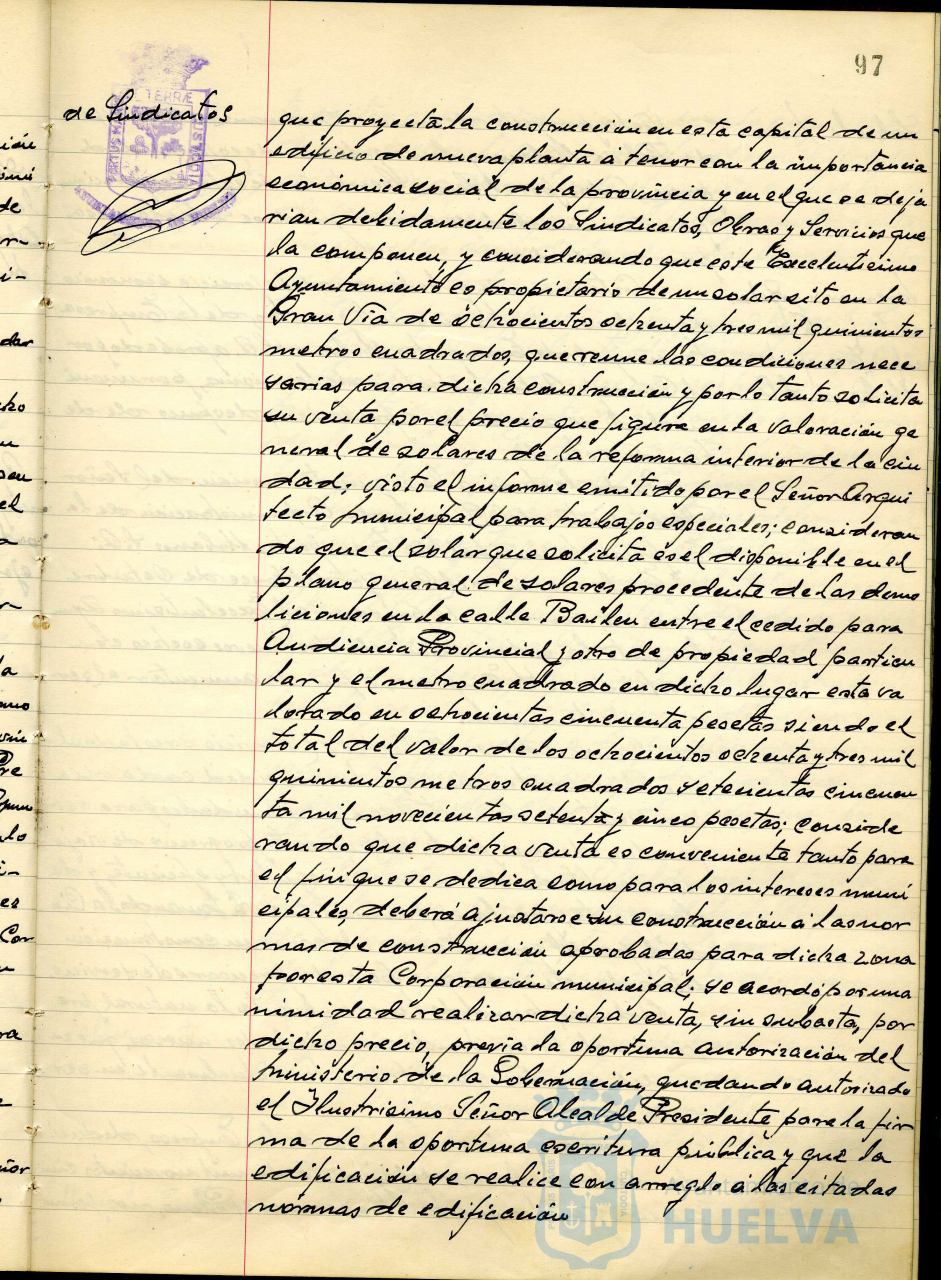 97
de Sindicatos
que proyecta la construcción en esta capital de un
edificio de nueva planta á tenor con la importancia
económica social de la provincia y en el que se deja
rian debidamente los Sindicatos, Obras y Servicios que
la componen, y considerando que este Excelentisimo
Ayuntamiento es propietario de un solar sito en la
Gran Vía de ochocientos ochenta y tres mil quinientos
metros cuadrados, que reune las condiciones nece
sarias para dicha construcción y por lo tanto solicita
su venta por el precio que figure en la valoración ge
neral de solares de la reforma interior de la ciu
dad; visto el informe emitido por el Señor Arqui
tecto municipal para trabajos especiales; consideran
do que el solar que solicita es el disponible en el
plano general de solares procedente de las demo
liciones en la calle Bailen entre el cedido para
Audiencia Provincial y otro de propiedad particu
lar y el metro cuadrado en dicho lugar esta va
lorado en ochocientas cincuenta pesetas siendo el
total del valor de los ochocientos ochenta y tres mil
quinientos metros cuadrados setecientas cincuen
ta mil novecientas setenta y cinco pesetas; conside
rando que dicha venta es conveniente tanto para
el fin que se dedica como para los intereses muni
cipales, deberá ajustarse su construcción á las nor
mas de construcción aprobadas para dicha zona
por esta Corporación municipal; se acordó por una
nimidad realizar dicha venta, sin subasta, por
dicho precio, previa la oportuna autorización del
Ministerio de la Gobernación, quedando autorizado
el Ilustrisimo Señor Alcalde Presidente para la fir
ma de la oportuna escritura pública y que la
edificación se realice con arreglo á las citadas
normas de edificación
HUELVA